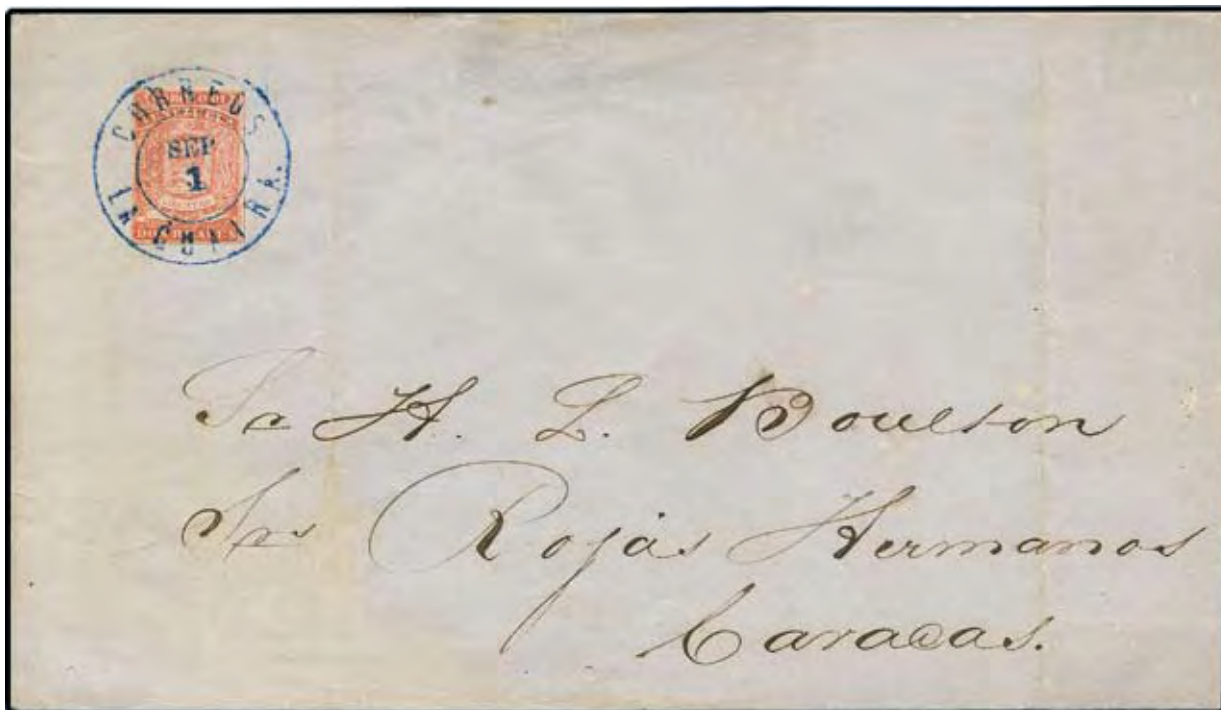 CORREOS
SEP
1
LA GUAIRA.
DOS REALES
Sr H. L. Boulton
Srs Rojas Hermanos
Caracas.